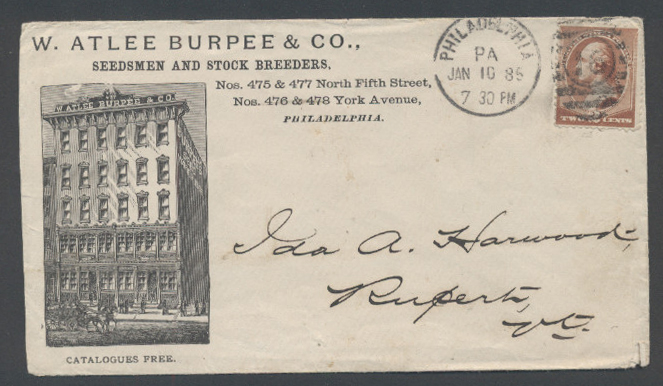 W. ATLEE BURPEE & CO.,
SEEDSMEN AND STOCK BREEDERS,
Nos. 475 & 477 North Fifth Street,
Nos. 476 & 478 York Avenue,
PHILADELPHIA.
PHILADELPHIA
PA
JAN 10 85
7 30 PM
TWO CENTS
W. ATLEE BURPEE & CO.
Ida A. Harwood,
Rupert,
Vt.
CATALOGUES FREE.